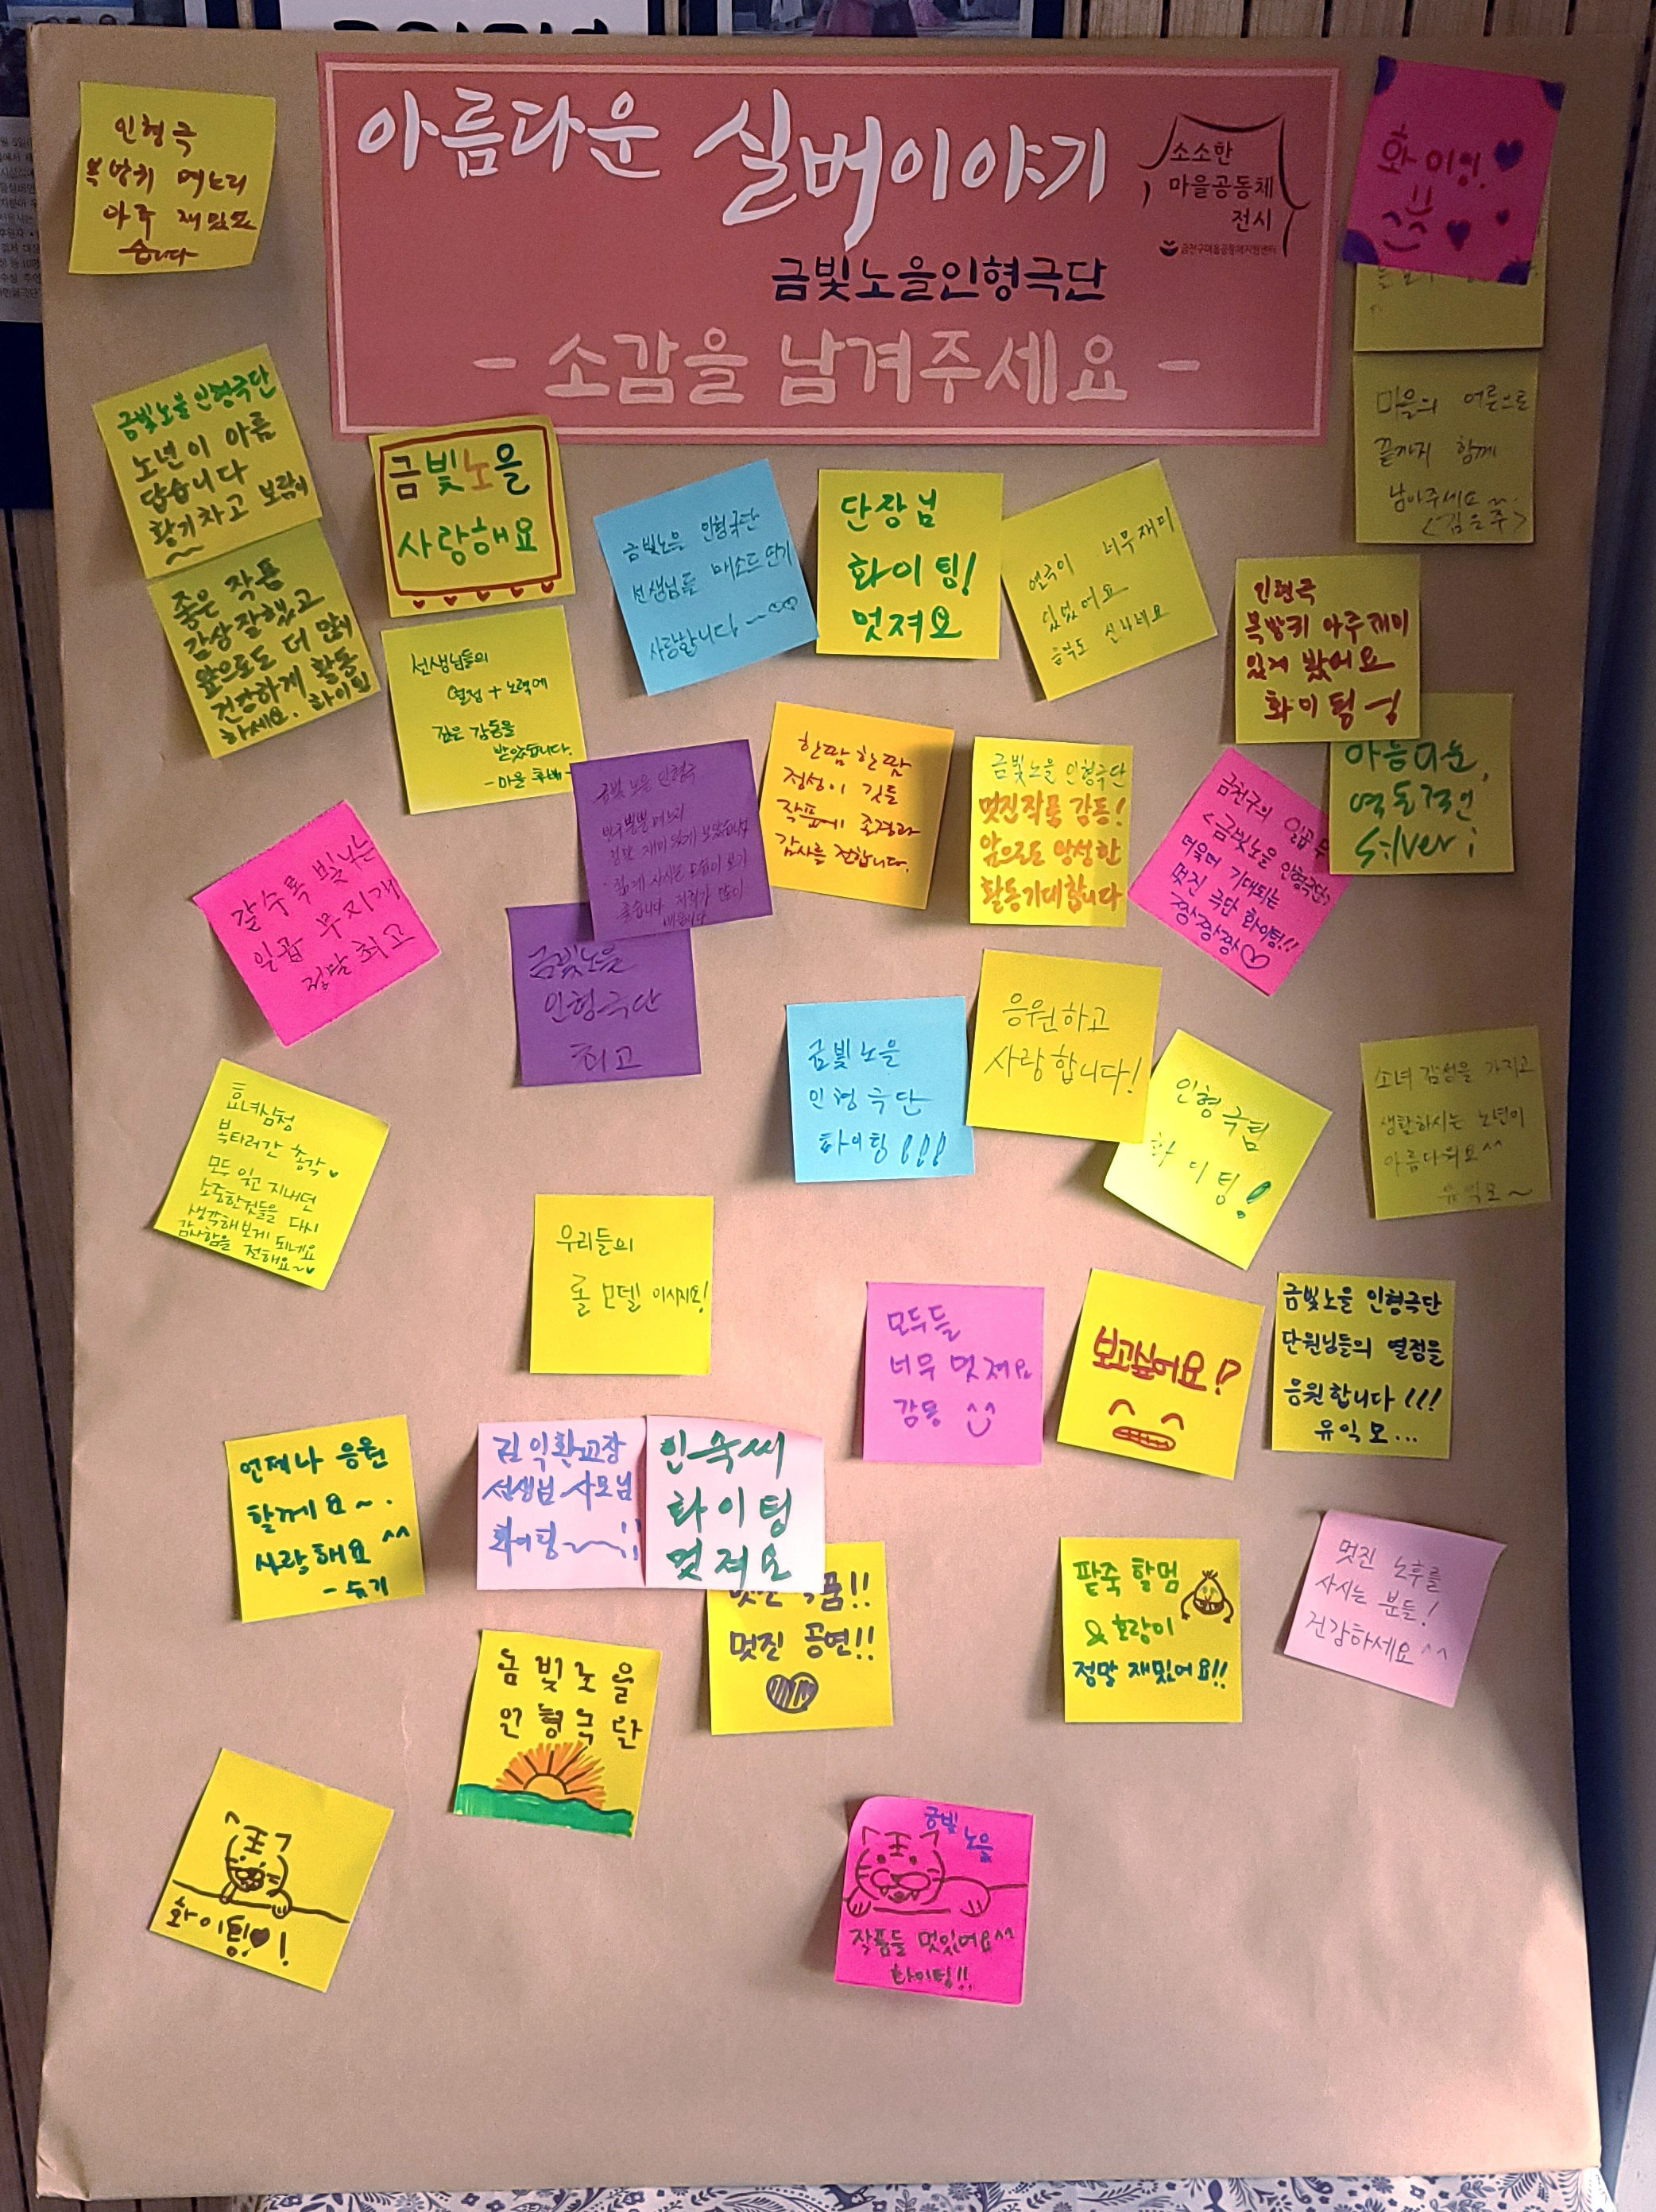 아름다운 실버이야기
소소한
마을공동체
전시
금천구마을공동체지원센터
금빛노을인형극단
- 소감을 남겨주세요 -
인형극
복방귀 며느리
아주 재밌었
습니다
화이팅!
마을의 어른으로
끝까지 함께
남아주세요~
<김은주>
금빛노을인형극단
노년이 아름
답습니다
활기차고 보람이
금빛노을
사랑해요
금빛노을 인형극단
선생님들 메소드 연기
사랑합니다~
단장님
화이팅!
멋져요
연극이 너무 재미
있었어요
음악도 신나네요
인형극
복방귀 아주 재미
있게 봤어요
화이팅
좋은 작품
감상 잘했고
앞으로도 더
건강하게 활동
하세요. 화이팅
선생님들의
열정 + 노력에
깊은 감동을
받았습니다.
- 마을 후배 -
금빛노을 인형극
정말 재미있게 보았습니다
좋습니다 저희가 많이
배웁니다
한땀 한땀
정성이 깃든
작품에 존경과
감사를 전합니다.
금빛노을 인형극단
멋진작품 감동!
앞으로도 왕성한
활동기대합니다
금천구의 일곱
<금빛노을 인형극단>
더욱더 기대되는
멋진 극단 화이팅!!
짱짱짱♡
아름다운,
역동적인
Silver!
갈수록 빛나는
일곱 무지개
정말 최고
금빛노을
인형극단
최고
금빛노을
인형극단
화이팅!!!
응원하고
사랑합니다!
인형극팀
화이팅!
소녀 감성을 가지고
생활하시는 노년이
아름다워요^^
유익모~
효녀심청
북타러간 총각♥
모두 잊고 지내던
소중한것들을 다시
생각해보게 되네요
감사함을 전해요~♥
우리들의
롤 모델 이시지요!
모두들
너무 멋져요
감동 ^^
보고싶어요!?
금빛노을 인형극단
단원님들의 열정을
응원합니다!!!
유익모...
언제나 응원
할께요~.
사랑해요^^
- 슬기
김익환교장
선생님 사모님
화이팅~!!
인숙씨
화이팅
멋져요
멋진 작품!!
멋진 공연!!
팥죽 할멈
& 호랑이
정말 재밌어요!!
멋진 노후를
사시는 분들!
건강하세요^^
금빛노을
인형극단
王
화이팅♥!
금빛
노을
王
작품들 멋있어요^^
화이팅!!